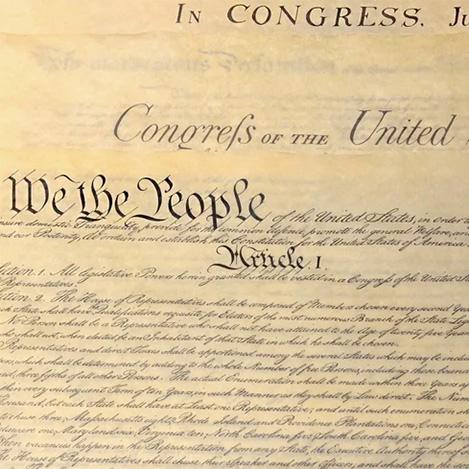 IN CONGRESS. Ju
Congreſs OF THE United
We the People of the United States, in order
insure domestic Tranquility, provide for the common defence, promote the general Welfare, and
and our Posterity, do ordain and establish this Constitution for the United States of America
Article. I.
Section. 1. All legislative Powers herein granted shall be vested in a Congress of the United St
Representatives.
Section. 2. The House of Representatives shall be composed of Members chosen every second Year
State shall have Qualifications requisite for Electors of the most numerous Branch of the State
No Person shall be a Representative who shall not have attained to the Age of twenty five Years
who shall not, when elected, be an Inhabitant of that State in which he shall be chosen.
Representatives and direct Taxes shall be apportioned among the several States which may be inclu
which shall be determined by adding to the whole Number of free Persons, including those boun
three fifths of all other Persons. The actual Enumeration shall be made within three Years
every subsequent Term of ten Years, in such Manner as they shall by Law direct. The Num
but each State shall have at Least one Representative; and until such enumeration
chuse three, Massachusetts eight, Rhode Island and Providence Plantations one, Connecticut
one, Maryland six, Virginia ten, North Carolina five, South Carolina five, and Geo
When vacancies happen in the Representation from any State, the Executive Authority thereof
House of Representatives shall chuse their Speaker and other Officers; and shall have